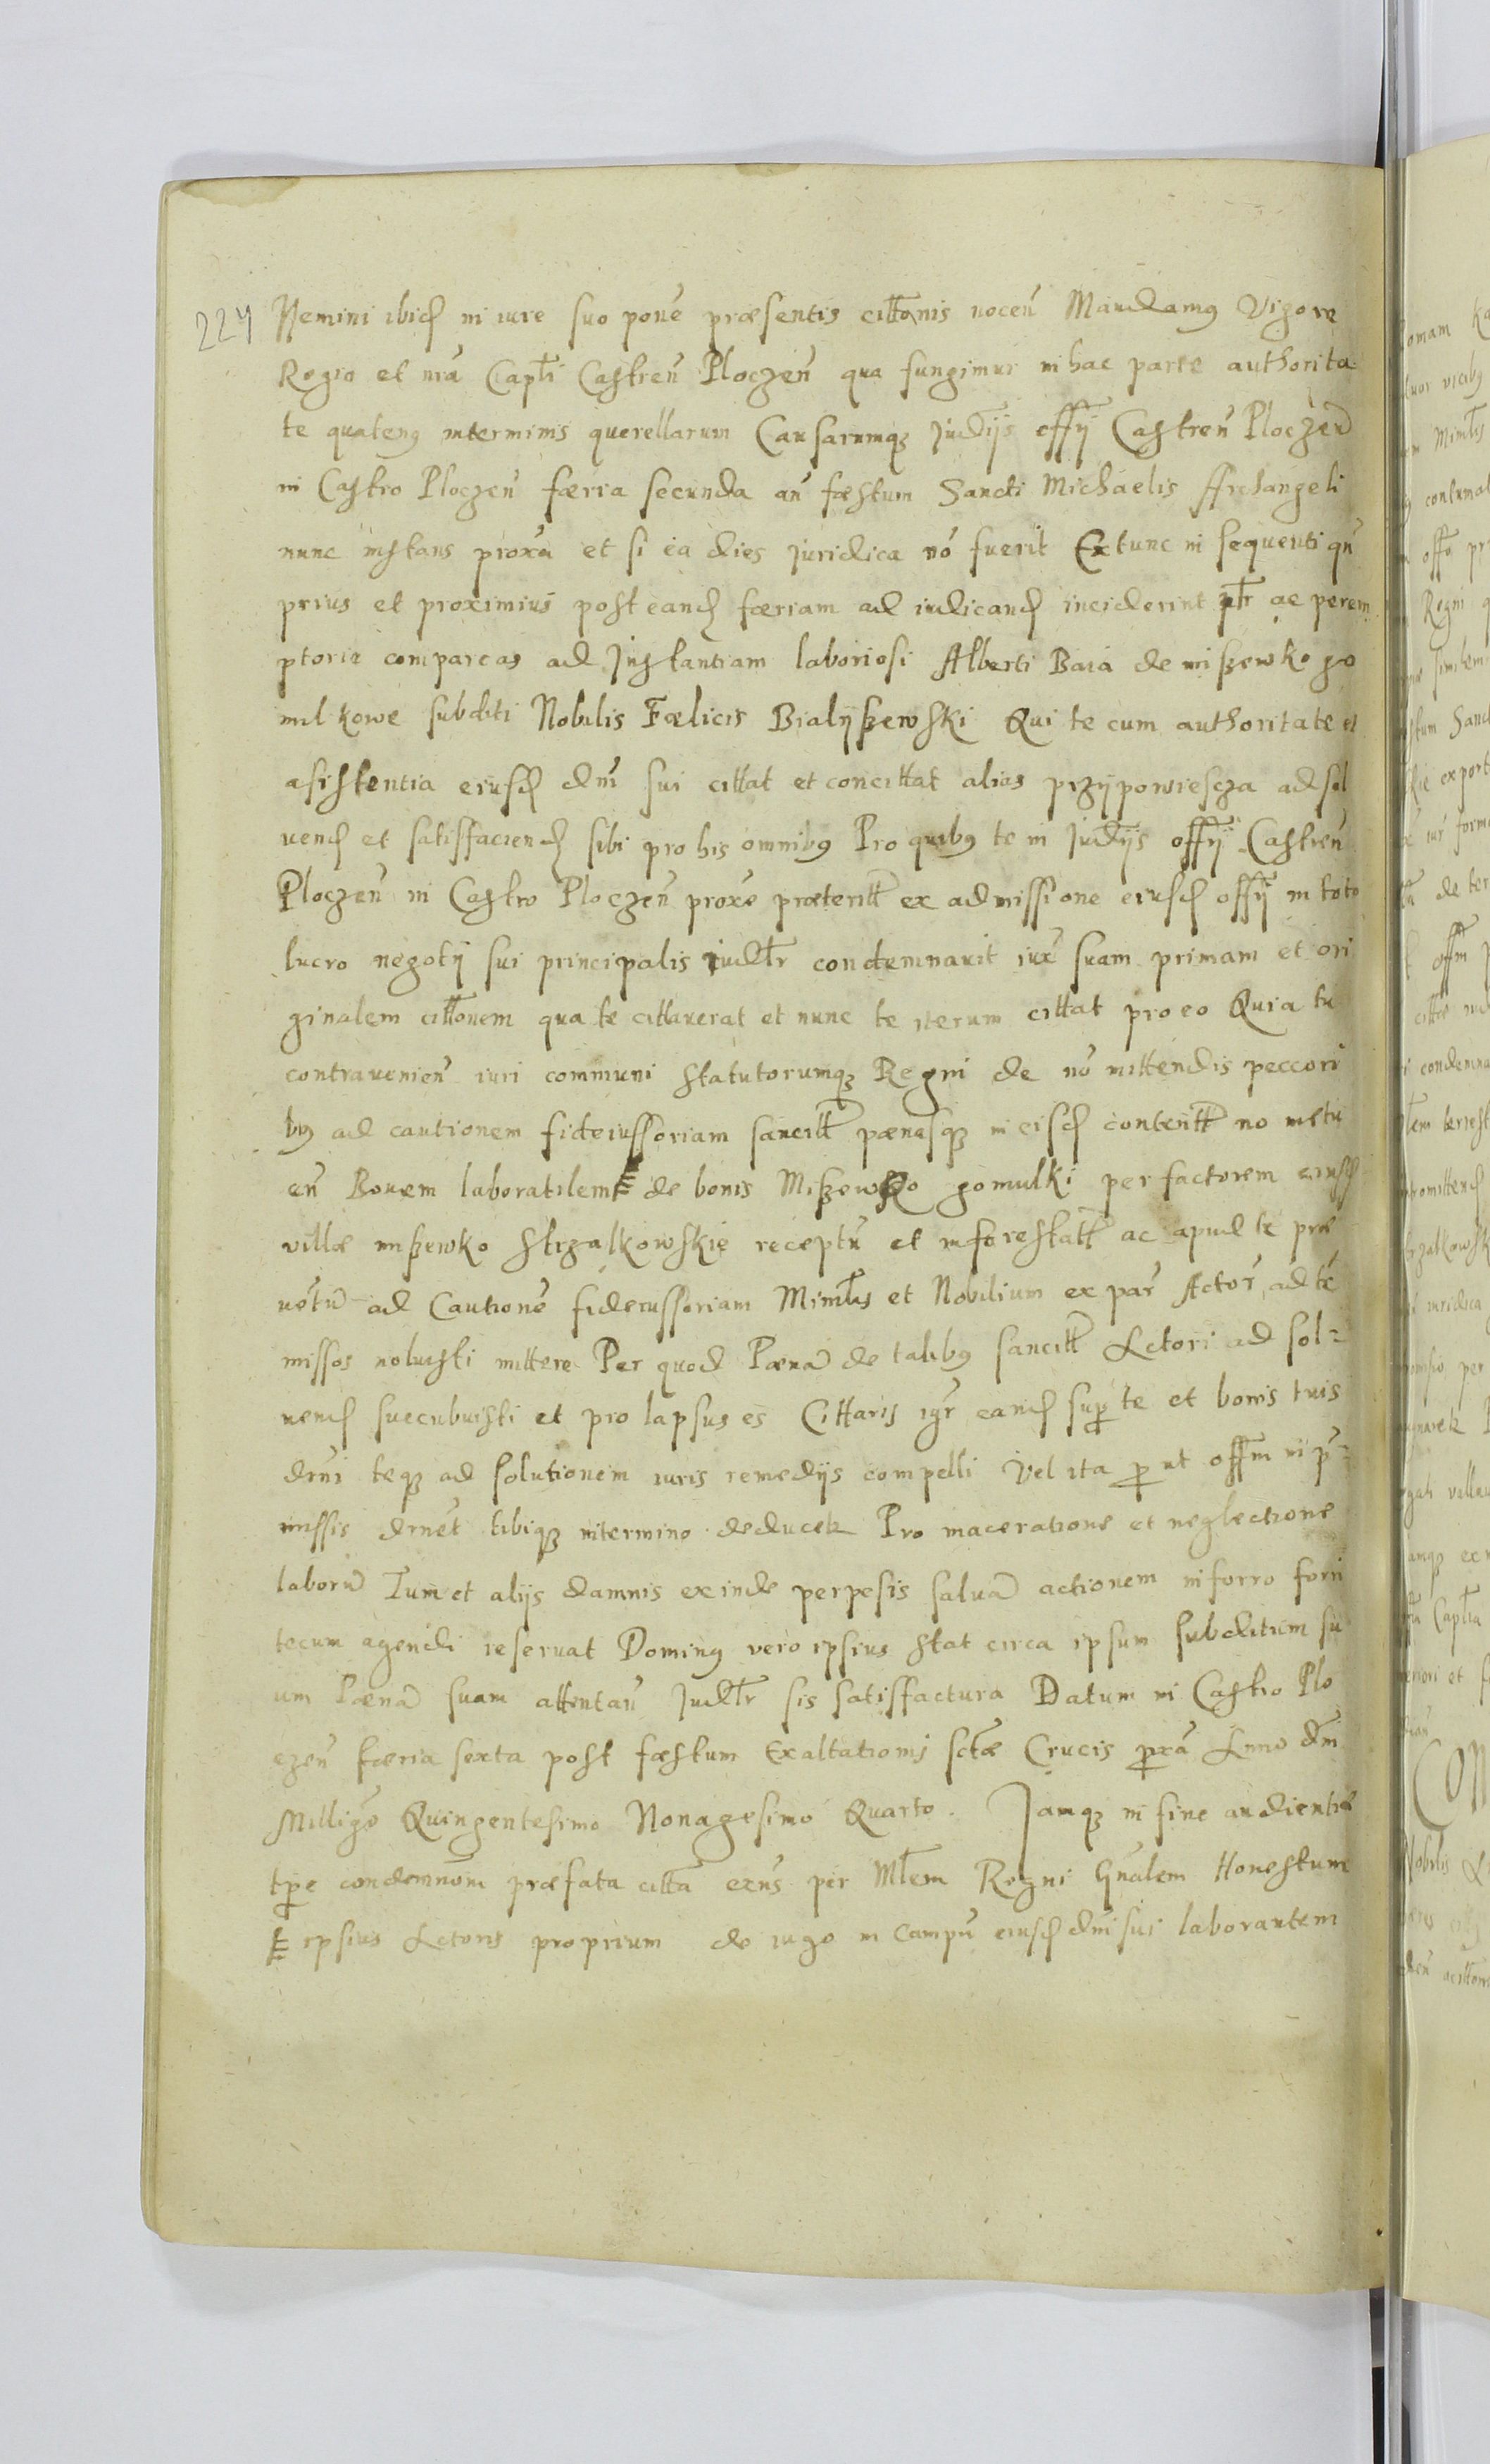 224
Nemini ibid in iure suo pone præsentis cittõnis nocen̄ Mandamꝰ Vigore
Regio et nr̄a Captli Castren̄ Ploczen̄ qua fungimur in hac parte authorita
te quatenꝰ interminis querellarum Causarumqꝫ Judijs offij Castren̄ Ploczen̄
in Castro Ploczen̄ færia secunda an̄ fæstum Sancti Michaelis Archangeli
nunc instans prox̃a et si ea dies iuridica nõ fuerit Extunc in sequenti qn̄
prius et proximius post eand færiam ad iudicand inciderint ptr ac perem
ptorie compareas ad Instantiam laboriosi Alberti Baia de miszewko go
mulkowe subditi Nobilis Fælicis Bialyszewski Qui te cum authoritate et
asistentia eiusd dn̄i sui cittat et concittat alias przypowiescza ad sol
uend et satisfaciend sibi pro his omnibꝰ Pro quibꝰ te in Judijs offij Castren̄
Ploczen̄ in Castro Ploczen̄ proxe præteritt ex admissione eiusd offij in toto
lucro negotij sui principalis iudtr condemnauit iux suam primam et ori
ginalem cittõnem qua te cittauerat et nunc te iterum cittat pro eo Quia tu
contrauenien̄ iuri communi statutorumqꝫ Regni de nõ mittendis peccori
bꝰ ad cautionem fideiussoriam sancitt pænasqꝫ in eisd contentt no metu
en̄ Bouem laboratilem de bonis Miszewko gomulki per factorem eiusd
villæ miszewko strzalkowskie receptũ et inforestatt ac apud te præ
uẽtũ ad Cautionẽ fideiussoriam Mintlis et Nobilium ex par̃ Actor̃ ad tẽ
missos noluisti mittere Per quod Pænã de talibꝰ sancitt Actori ad sol=
uend succubuisti et pro lapsus es Cittaris igr̃ eand sup te et bonis tuis
dr̄ni teqꝫ ad solutionem iuris remedijs compelli Vel ita ꝓ ut offm in p̃=
missis drnẽt tibiqꝫ intermino deducetꝛ Pro maceratione et neglectione
laborũ Tum et alijs damnis exinde perpesis saluã actionem in forro fori
tecum agendi reseruat Dominꝰ vero ipsius stat circa ipsum subditum su
um Pænã suam attentan̄ Judtr sis satisfactura Datum in Castro Plo
czen̄ Færia sexta post fæstum Exaltationis sctæ Crucis prox̃a Anno dn̄i
Milligẽo Quingentesimo Nonagesimo Quarto. Jamqꝫ in fine audientiæ
tpe condemnõm præfata citta exn̄s per Mtlem Regni Gn̄alem Honestum
ipsius Actoris proprium de iugo in campũ eiusd dn̄i sui laborantem